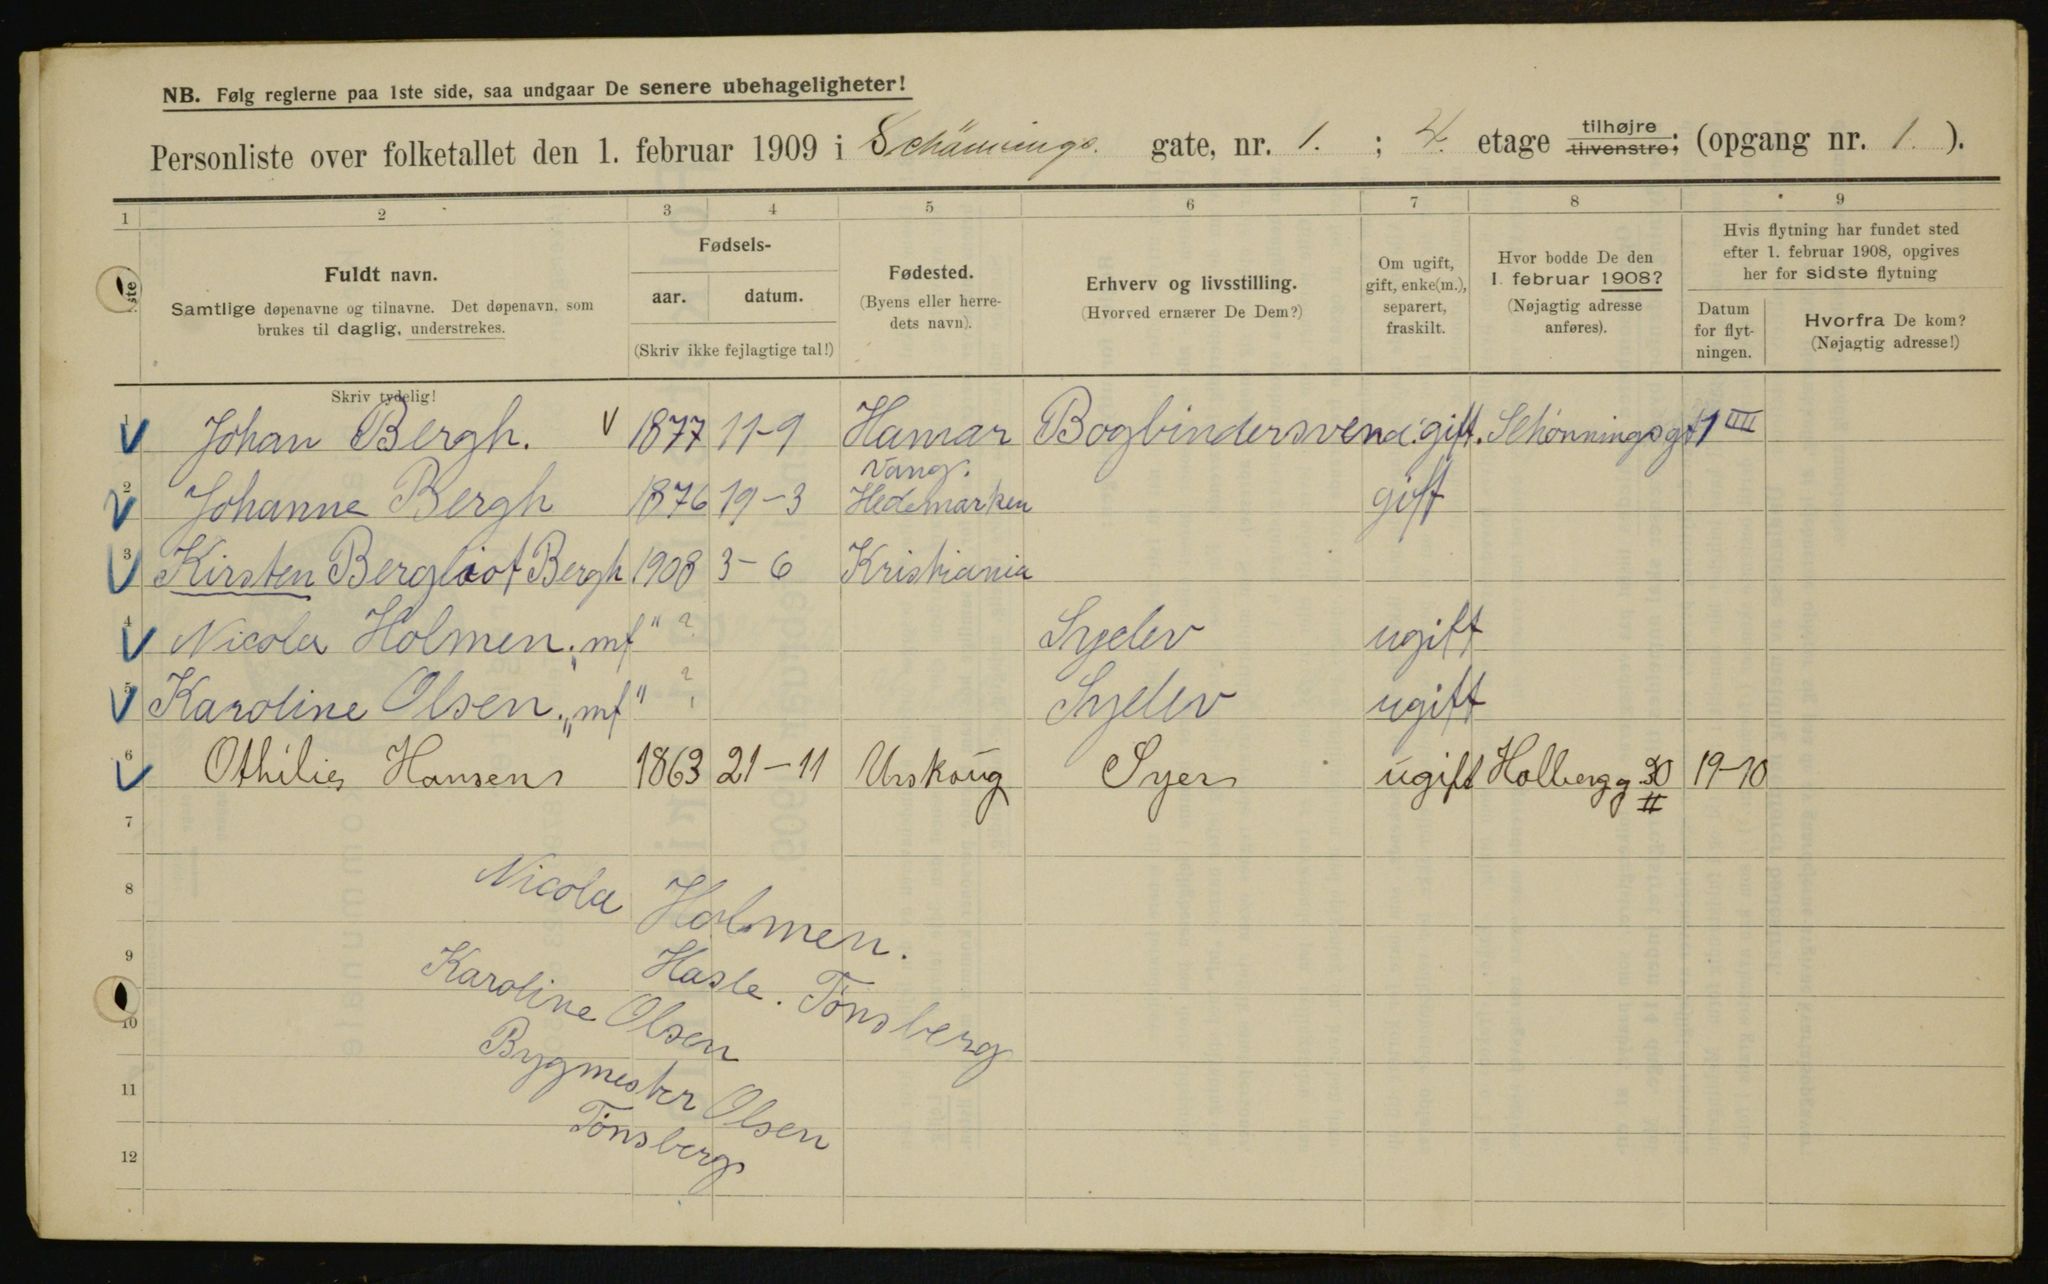 NB. Følg reglerne paa 1ste side, saa undgaar De senere ubehageligheter!
Personliste over folketallet den 1. februar 1909 i Schønnings. gate, nr. 1. ; 4. etage tilhøjre tilvenstre; (opgang nr. 1. ).
1 2 3 4 5 6 7 8 9
Fuldt navn.
Samtlige døpenavne og tilnavne. Det døpenavn, som
brukes til daglig, understrekes.
Skriv tydelig!
Fødsels-
aar. datum.
(Skriv ikke fejlagtige tal!)
Fødested.
(Byens eller herre-
dets navn).
Erhverv og livsstilling.
(Hvorved ernærer De Dem?)
Om ugift,
gift, enke(m.),
separert,
fraskilt.
Hvor bodde De den
1. februar 1908?
(Nøjagtig adresse
anføres).
Hvis flytning har fundet sted
efter 1. februar 1908, opgives
her for sidste flytning
Datum
for flyt-
ningen.
Hvorfra De kom?
(Nøjagtig adresse!)
1 Johan Bergh. V 1877 11-9 Hamar Bogbindersvend. gift. Schønningsgt 1 III
2 Johanne Bergh 1876 19-3 Vang. Hedemarken gift
3 Kirsten Bergliot Bergh 1908 3-6 Kristiania
4 Nicola Holmen. "mf" ? Syelev ugift
5 Karoline Olsen. "mf" ? Syelev ugift
6 Othilie Hansen 1863 21-11 Urskoug Syer ugift Holbergg 30 II 19-10
7
8
9
10
11
12
Nicola Holmen.
Hasle. Tønsberg
Karoline Olsen
Bygmester Olsen
Tønsberg